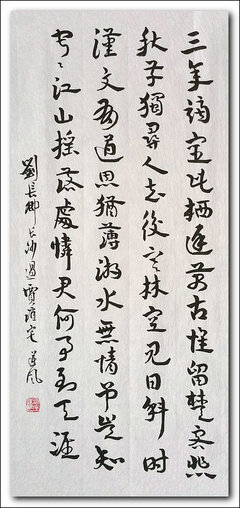 三年謫宦此栖遲萬古惟留楚客悲
秋草獨尋人去後寒林空見日斜时
漢文有道恩猶薄湘水無情弔豈知
寂々江山摇落處憐君何事到天涯
劉長卿長沙過賈誼宅